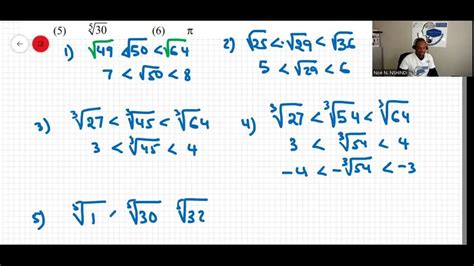 (5) ⁵√30 (6) π
1) √49 < √50 < √64
7 < √50 < 8
2) √25 < √29 < √36
5 < √29 < 6
3) ³√27 < ³√45 < ³√64
3 < ³√45 < 4
4) ³√27 < ³√54 < ³√64
3 < ³√54 < 4
-4 < -³√54 < -3
5) ⁵√1 < ⁵√30 ⁵√32